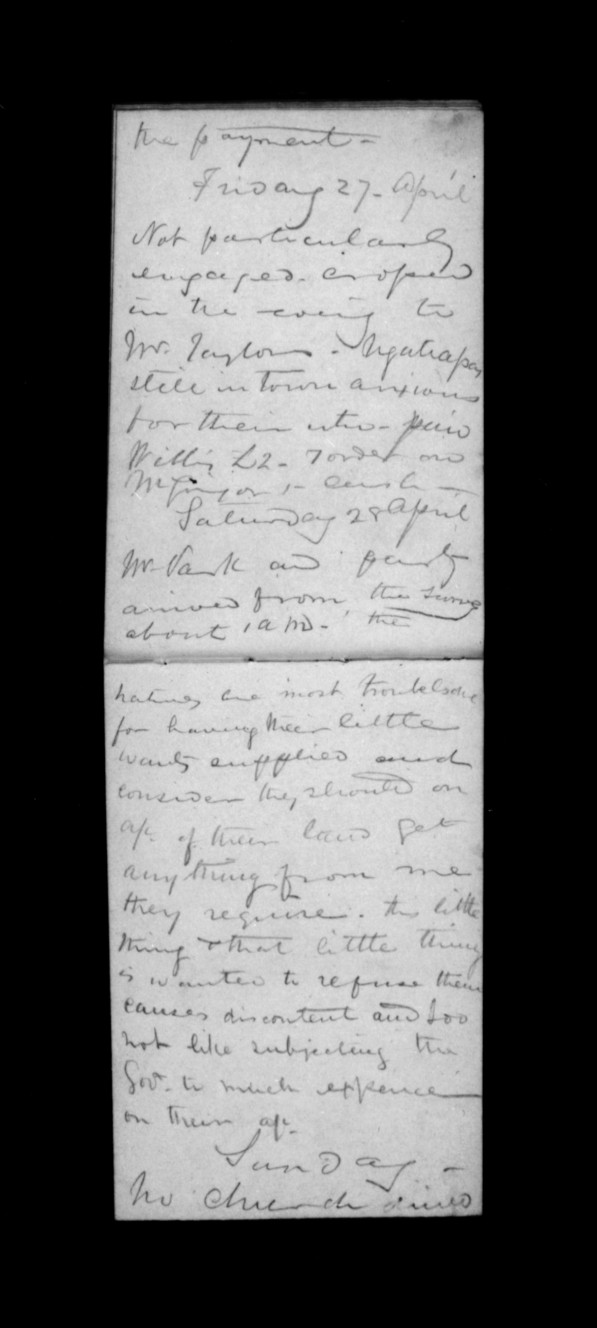 the payment -
Friday 27. April
Not particularly
engaged.
in the to
Mr. Taylors - Ngatiapas
still in town anxious
for their paid
Willis £2 - order on
McGregor cash -
Saturday 28 April
Mr. Park and party
arrived from the
about 1 a.m. - the
natives are most troublesome
for having their little
wants supplied and
consider they should on
a/c. of their land get
anything from me
they require. this little
thing & that little thing
is wanted to refuse them
causes discontent and I do
not like subjecting the
Govt. to much expence
on their a/c.
Sunday -
No Church dined